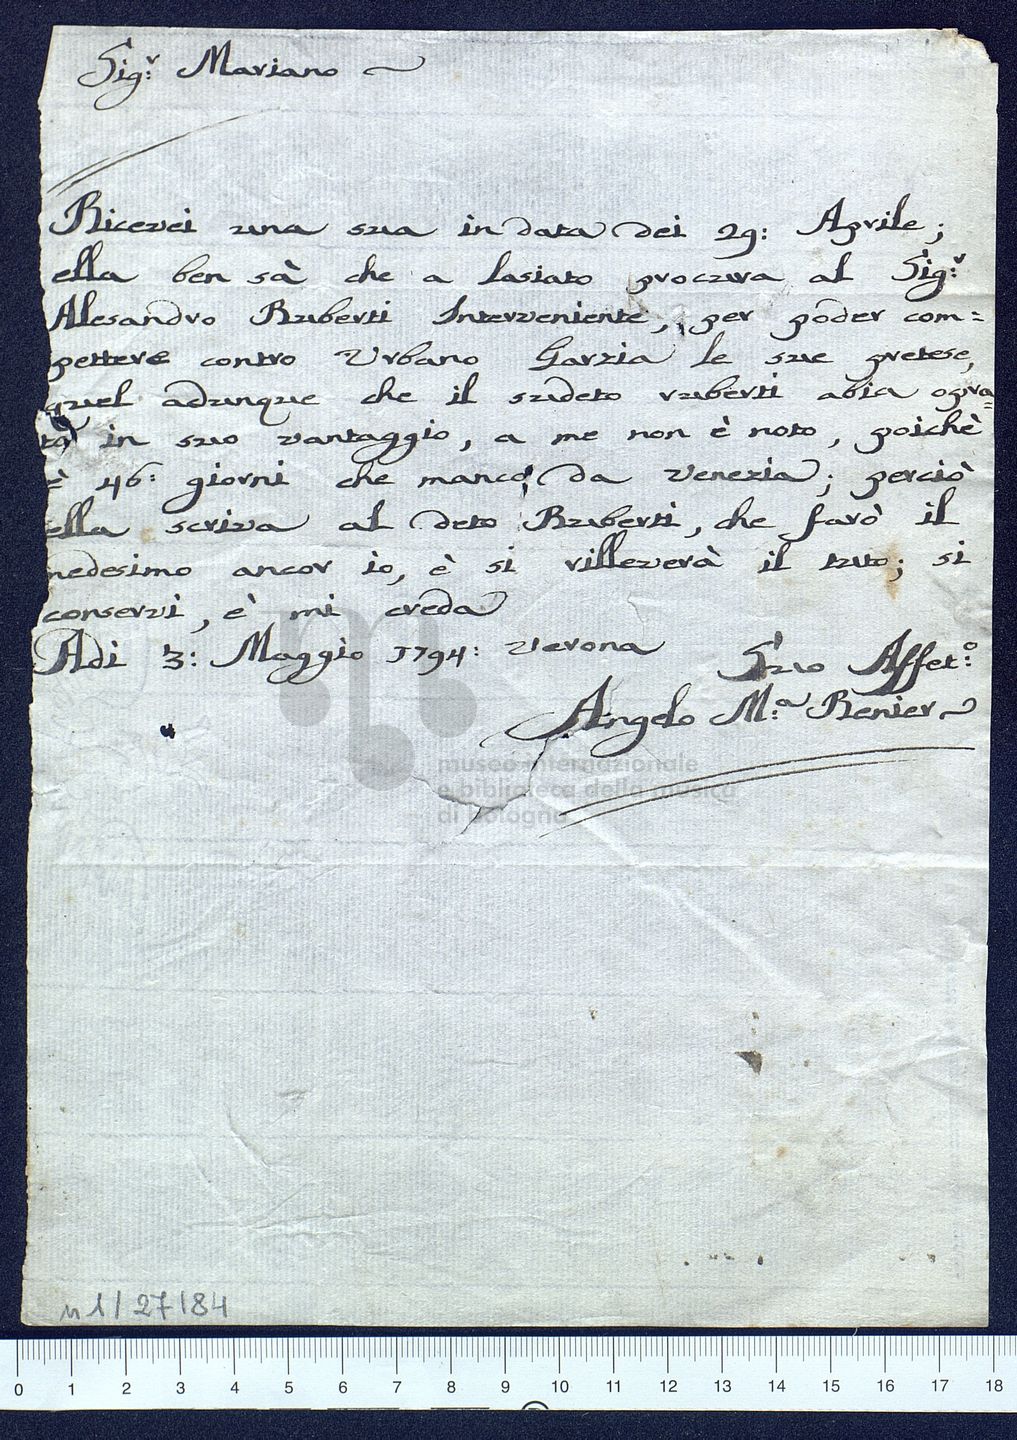 Sig:r Mariano
Ricevei una sua in data dei 29: Aprile;
ella ben sà che a lasiato procura al Sig:r
Alesandro Ruberti Interveniente, per poder com=
pettere contro Urbano Garzia le sue pretese,
quel adunque che il sudeto ruberti abia opra=
to in suo vantaggio, a me non è noto, poichè
è 46: giorni che manco da Venezia; perciò
ella scriva al deto Ruberti, che farò il
medesimo ancor ìo, è si rilleverà il tuto; si
conservi, è mi creda
Adi 3: Maggio 1794: Verona Suo Affet:o
Angelo M:a Renier
museo internazionale
e biblioteca della musica
di bologna
n 1/27/84
0 1 2 3 4 5 6 7 8 9 10 11 12 13 14 15 16 17 18